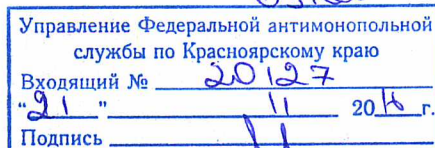 Управление Федеральной антимонопольной
службы по Красноярскому краю
Входящий № 20127
"21" 11 2016 г.
Подпись